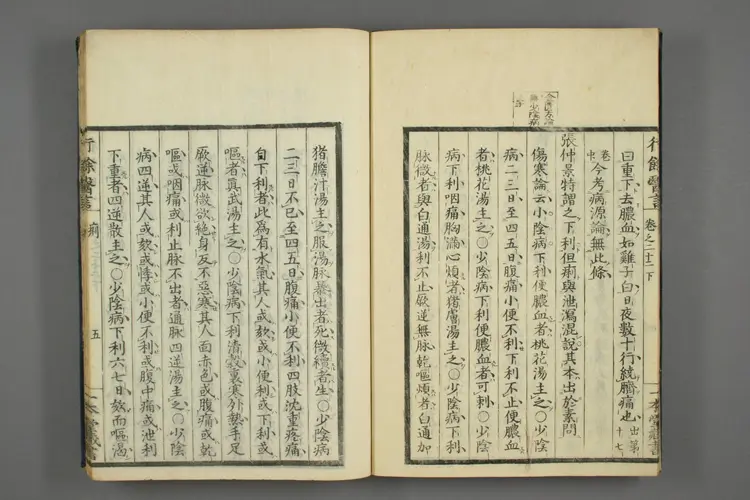 行餘醫言 卷之二十二下
曰重下去膿血如雞子白日夜數十行繞臍痛也出第十七
卷中今考病源論無此條
張仲景特謂之下利但痢與泄瀉混說其本出於素問
傷寒論云少陰病下利便膿血者桃花湯主之○少陰
病二三日至四五日腹痛小便不利下利不止便膿血
者桃花湯主之○少陰病下利便膿血者可刺○少陰
病下利咽痛胸滿心煩者猪膚湯主之○少陰病下利
脉微者與白通湯利不止厥逆無脉乾嘔煩者白通加
猪膽汁湯主之服湯脉暴出者死微續者生○少陰病
二三日不已至四五日腹痛小便不利四肢沈重疼痛
自下利者此爲有水氣其人或欬或小便利或下利或
嘔者眞武湯主之○少陰病下利清穀裏寒外熱手足
厥逆脉微欲絶身反不惡寒其人面赤色或腹痛或乾
嘔或咽痛或利止脉不出者通脉四逆湯主之○少陰
病四逆其人或欬或悸或小便不利或腹中痛或泄利
下重者四逆散主之○少陰病下利六七日欬而嘔渴
行餘醫言
痢
五